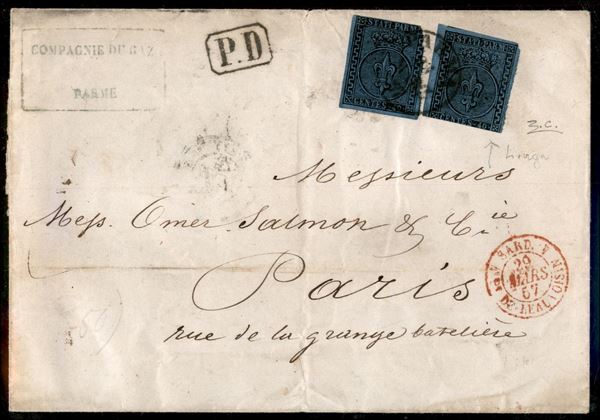 COMPAGNIE DU GAZ
PARME
P.D
STATI PARM
CENTES. 40
STATI PARM
CENTES. 40
Messieurs
Mess. Omer Salmon & Cie
Paris
rue de la grange batelière
SARD.
29
MARS
57